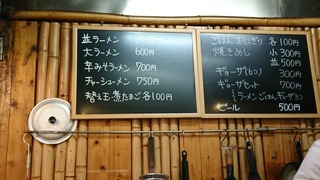 並ラーメン 500円
大ラーメン 600円
辛みそラーメン 700円
チャーシューメン 750円
替え玉・煮たまご各100円
ごはん、おにぎり 各100円
焼きめし 小300円
並500円
ギョーザ(6コ) 300円
ギョーザセット 700円
(ラーメン、ごはん、ギョーザ3コ)
ビール 500円